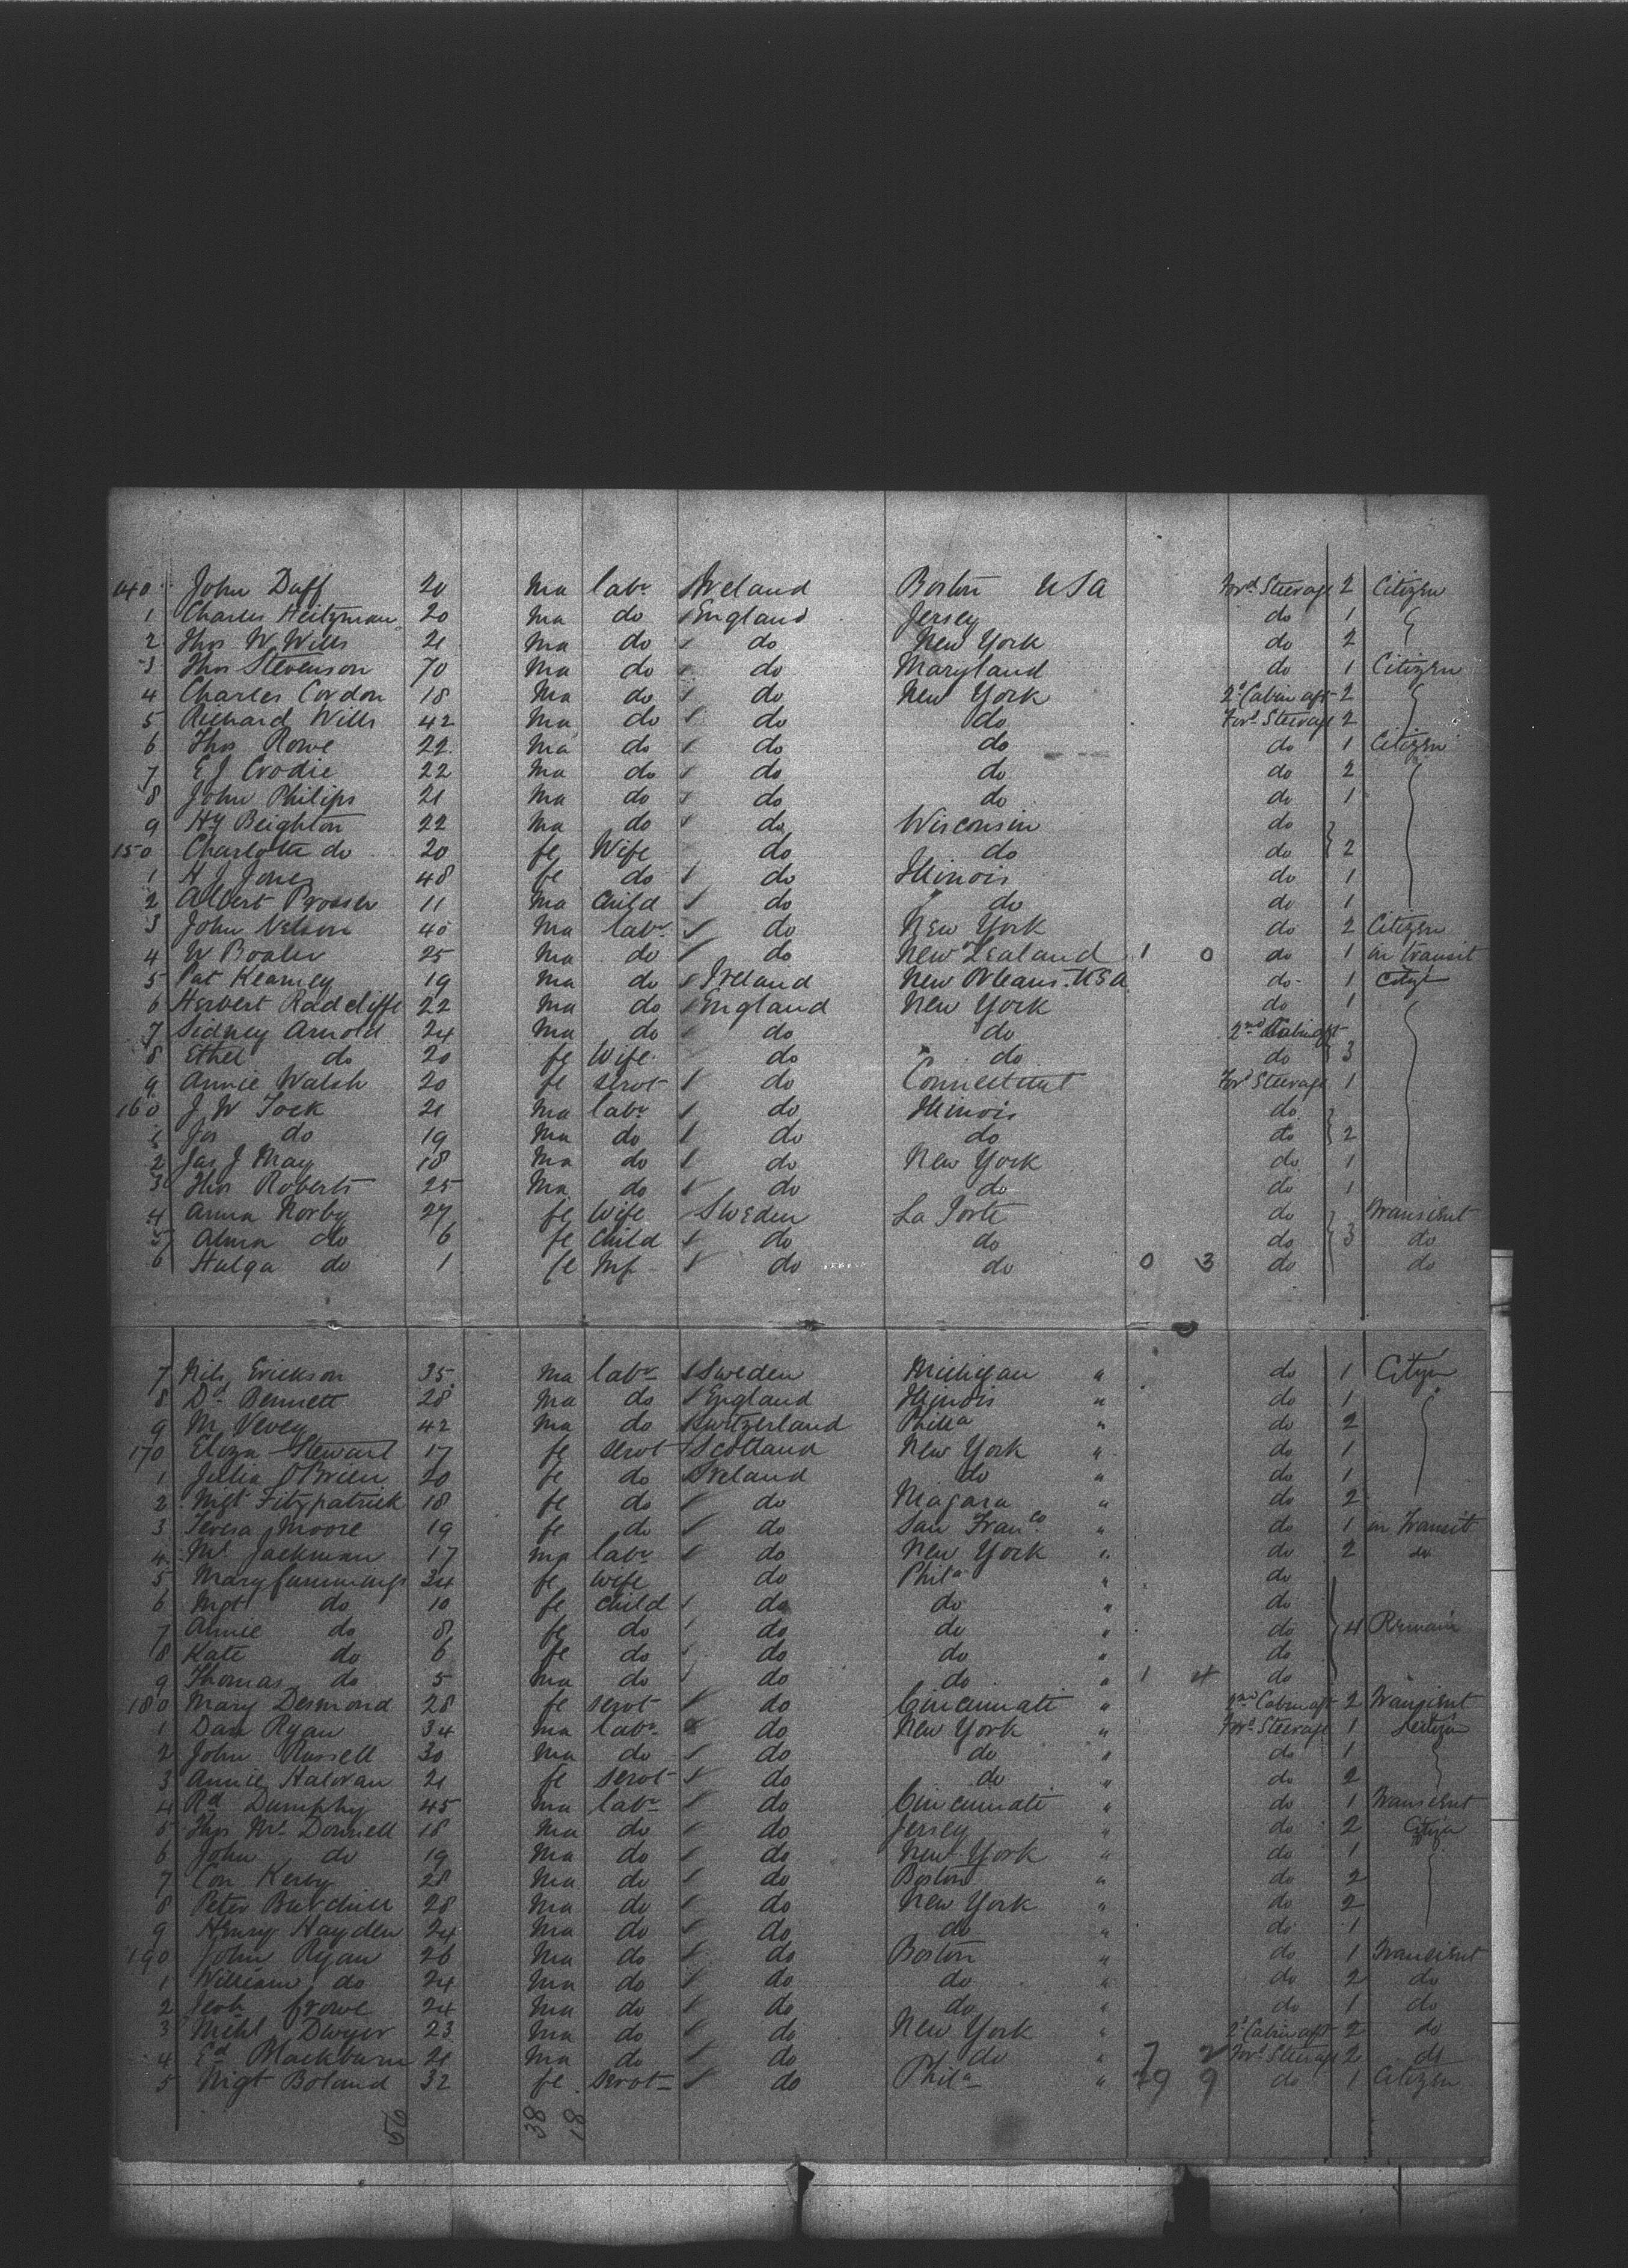 140 John Duff 20 ma labr Ireland Boston USA Ford Steerage 2 Citizen
1 Charles Heitzman 20 ma do England Jersey do 1
2 Thos W. Wills 21 ma do do New York do 2
3 Thos Stevenson 70 ma do do Maryland do 1 Citizen
4 Charles Cordon 18 ma do do New York 2d Cabin aft 2
5 Richard Wills 42 ma do do do Ford Steerage 2
6 Thos Rowe 22 ma do do do do 1 Citizen
7 E J Crodie 22 ma do do do do 2
8 John Philips 21 ma do do do do 1
9 Hy Beighton 22 ma do do Wisconsin do
150 Charlotte do 20 fe Wife do do do 2
1 H J Jones 48 fe do do Illinois do 1
2 Albert Prosser 11 ma Child do do do 1
3 John Nelson 40 ma labr do New York do 2 Citizen
4 W 25 ma do do New Zealand 1 0 do 1 in transit
5 Pat Kearney 19 ma do Ireland New Orleans. USA do 1
6 Herbert Radcliffe 22 ma do England New York do 1
7 Sidney Arnold 24 ma do do do 2nd Cabin aft
8 Ethel do 20 fe Wife do do do 3
9 Annie Walsh 20 fe servt do Connecticut Ford Steerage 1
160 J W Tock 21 ma labr do Illinois do
1 Jos do 19 ma do do do do 2
2 Jas J May 18 ma do do New York do 1
3 Thos Roberts 25 ma do do do do 1
4 Anna Norby 27 fe Wife Sweden La Porte do Transient
5 Alma do 6 fe Child do do do 3 do
6 Halga do 1 fe Inf do do 0 3 do do
7 Nils Erickson 35 ma labr Sweden Michigan " do 1 Citizen
8 Dd Bennett 28 ma do England Illinois " do 1
9 M Vevey 42 ma do Switzerland Phila " do 2
170 Eliza Stewart 17 fe servt Scotland New York " do 1
1 Julia OBrien 20 fe do Ireland do " do 1
2 Mgt Fitzpatrick 18 fe do do Niagara " do 2
3 Teresa Moore 19 fe do do San Franco " do 1 in Transit
4 Ml Jackman 17 ma labr do New York " do 2 do
5 Mary Cummings 34 fe wife do Phila " do
6 Mgt do 10 fe child do do " do
7 Annie do 8 fe do do do " do 4 Remain
8 Kate do 6 fe do do do " do
9 Thomas do 5 ma do do do " 1 4 do
180 Mary Desmond 28 fe servt do Cincinnati " 2nd Cabin aft 2 Transient
1 Dan Ryan 34 ma labr do New York " Ford Steerage 1 Citizen
2 John Russell 30 ma do do do " do 1
3 Annie Halovan 21 fe servt do do " do 2
4 Rd Dumphy 45 ma labr do Cincinnati " do 1 Transient
5 Thos Mc Donnell 18 ma do do Jersey " do 2 Citizen
6 John do 19 ma do do New York " do 1
7 Con Kerby 28 ma do do Boston " do 2
8 Peter Burchill 28 ma do do New York " do 2
9 Henry Hayden 24 ma do do do " do 1
190 John Ryan 26 ma do do Boston " do 1 Transient
1 William do 24 ma do do do " do 2 do
2 Jerh Crowe 24 ma do do do " do 1 do
3 Michl Dwyer 23 ma do do New York " 2d Cabin aft 2 do
4 Ed Blackburn 21 ma do do do " 7 2 Ford Steerage 2 do
5 Mgt Boland 32 fe servt do Phila " 19 9 do 1 Citizen
56 38 18